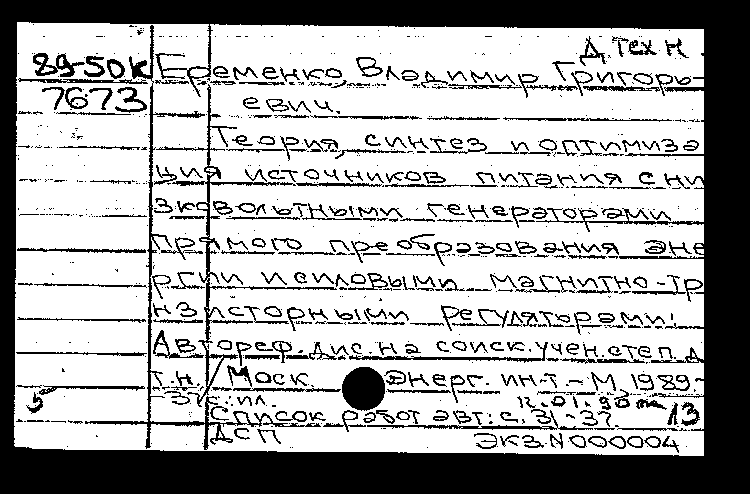 Д. Тех Н.
89-50К Еременко, Владимир Григорь-
7673 евич.
Теория, синтез и оптимиза
ция источников питания с ни
зковольтными генераторами
прямого преобразования эне
ргии и силовыми магнитно-тр
нзисторными регуляторами:
Автореф. дис. на соиск. учен. степ. д
т.н. / Моск. Энерг. ин-т. - М., 1989.-
с.: ил. 12.01.90
5 Список работ авт.: с. 31-37. 13
ДСП Экз. N 000004